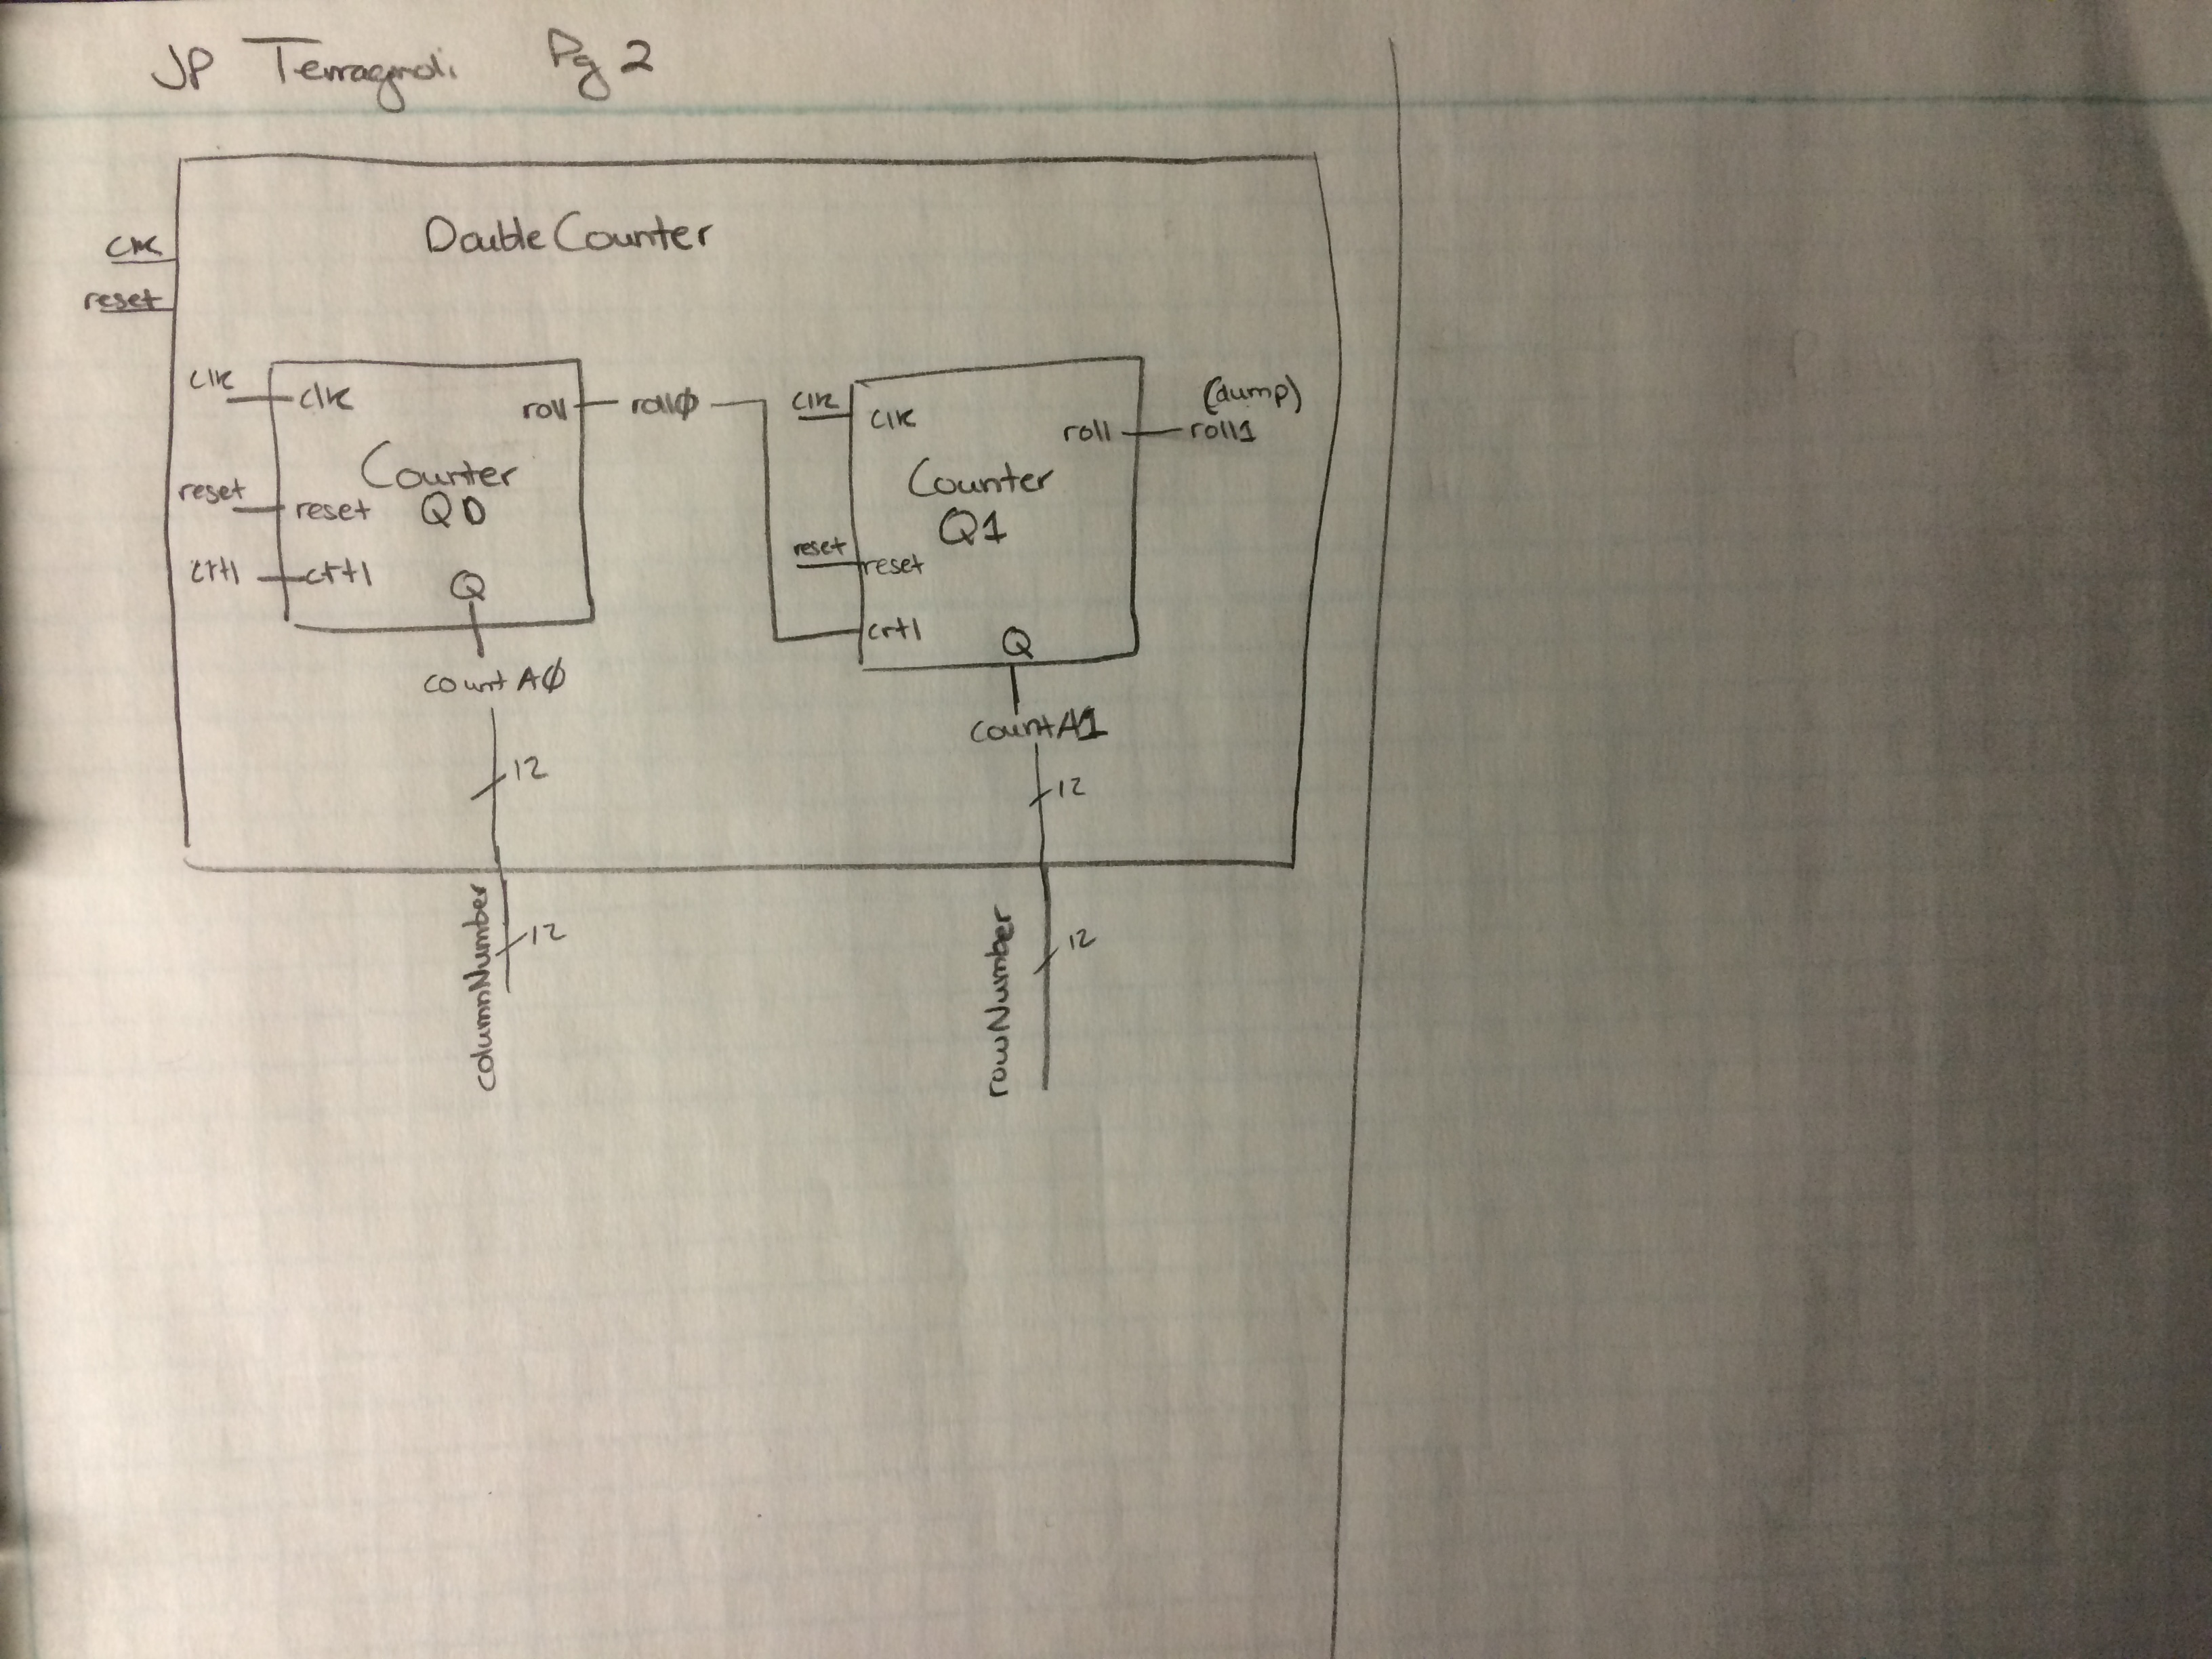 JP Terragnoli Pg 2
clk
reset
DoubleCounter
clk
reset
crtl
clk
reset
crtl
Counter
Q0
roll
Q
roll0
countA0
12
columnNumber
12
clk
reset
clk
reset
crtl
Counter
Q1
roll
Q
(dump)
roll1
countA1
12
rowNumber
12